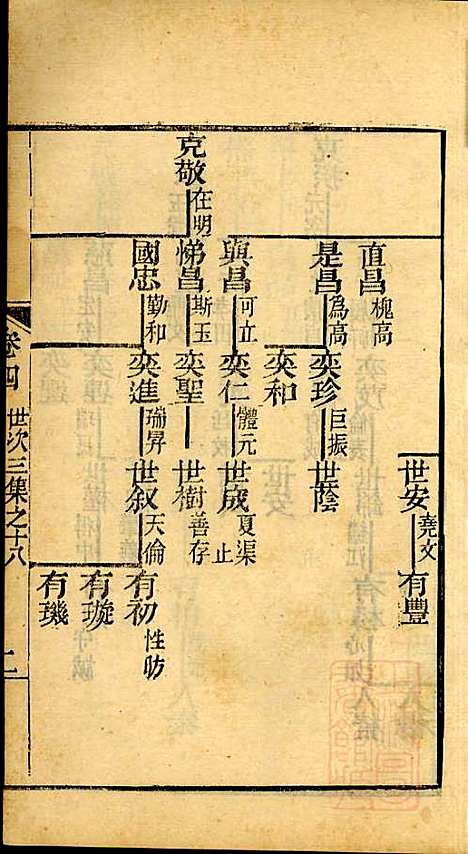 世安 堯文 有豐
直昌 槐高
是昌 為高 奕珍 巨振 世蔭
奕和
與昌 可立 奕仁 體元 世成 夏渠 止
克敬 在明 悌昌 斯玉 奕聖 世樹 善存
國忠 勤和 奕進 瑞昇 世叙 天倫 有初 性昉
有璇
有璣
卷四 世次三集之十八 二